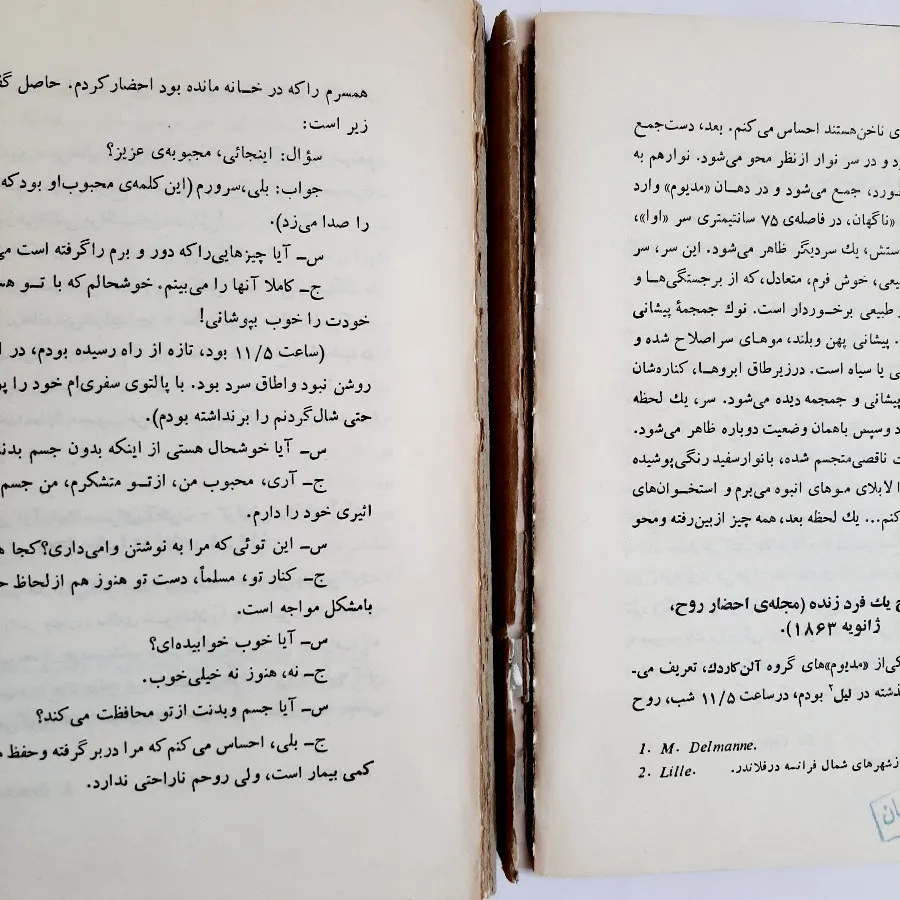 ناخن هستند احساس می‌کنم. بعد، دست جمع
و در سر نوار از نظر محو می‌شود. نوار هم به
جمع می‌شود و در دهان «مدیوم» وارد
«ناگهان، در فاصله‌ی ۷۵ سانتیمتری سر «اوا»،
یك سر دیگر ظاهر می‌شود. این سر، سر
خوش فرم، متعادل، که از برجستگی‌ها و
طبیعی برخوردار است. نوك جمجمهٔ پیشانی
پیشانی پهن و بلند، موهای سر اصلاح شده و
یا سیاه است. در زیر طاق ابروها، کناره‌شان
پیشانی و جمجمه دیده می‌شود. سر، یك لحظه
و سپس با همان وضعیت دوباره ظاهر می‌شود.
ناقصی متجسم شده، با نوار سفید رنگی پوشیده
لابلای موهای انبوه می‌برم و استخوان‌های
یك لحظه بعد، همه چیز از بین رفته و محو
یك فرد زنده (مجله‌ی احضار روح،
ژانویه ۱۸۶۳).
از «مدیوم»های گروه آلن کاردك، تعریف می-
در لیل۲ بودم، در ساعت ۱۱/۵ شب، روح
1. M. Delmanne.
2. Lille. شهرهای شمال فرانسه در فلاندر.
همسرم را که در خانه مانده بود احضار کردم. حاصل
زیر است:
سؤال: اینجائی، محبوبه‌ی عزیز؟
جواب: بلی، سرورم (این کلمه‌ی محبوب او بود که
را صدا می‌زد).
س- آیا چیزهایی را که دور و برم را گرفته است
ج- کاملا آنها را می‌بینم. خوشحالم که با تو
خودت را خوب بپوشانی!
(ساعت ۱۱/۵ بود، تازه از راه رسیده بودم، در
روشن نبود و اطاق سرد بود. با پالتوی سفری‌ام خود را
حتی شال گردنم را برنداشته بودم).
س- آیا خوشحال هستی از اینکه بدون جسم
ج- آری، محبوب من، از تو متشکرم، من جسم
اثیری خود را دارم.
س- این توئی که مرا به نوشتن وامی‌داری؟ کجا
ج- کنار تو، مسلماً، دست تو هنوز هم از لحاظ
با مشکل مواجه است.
س- آیا خوب خوابیده‌ای؟
ج- نه، هنوز نه خیلی خوب.
س- آیا جسم و بدنت از تو محافظت می‌کند؟
ج- بلی، احساس می‌کنم که مرا در بر گرفته و حفظ
کمی بیمار است، ولی روحم ناراحتی ندارد.